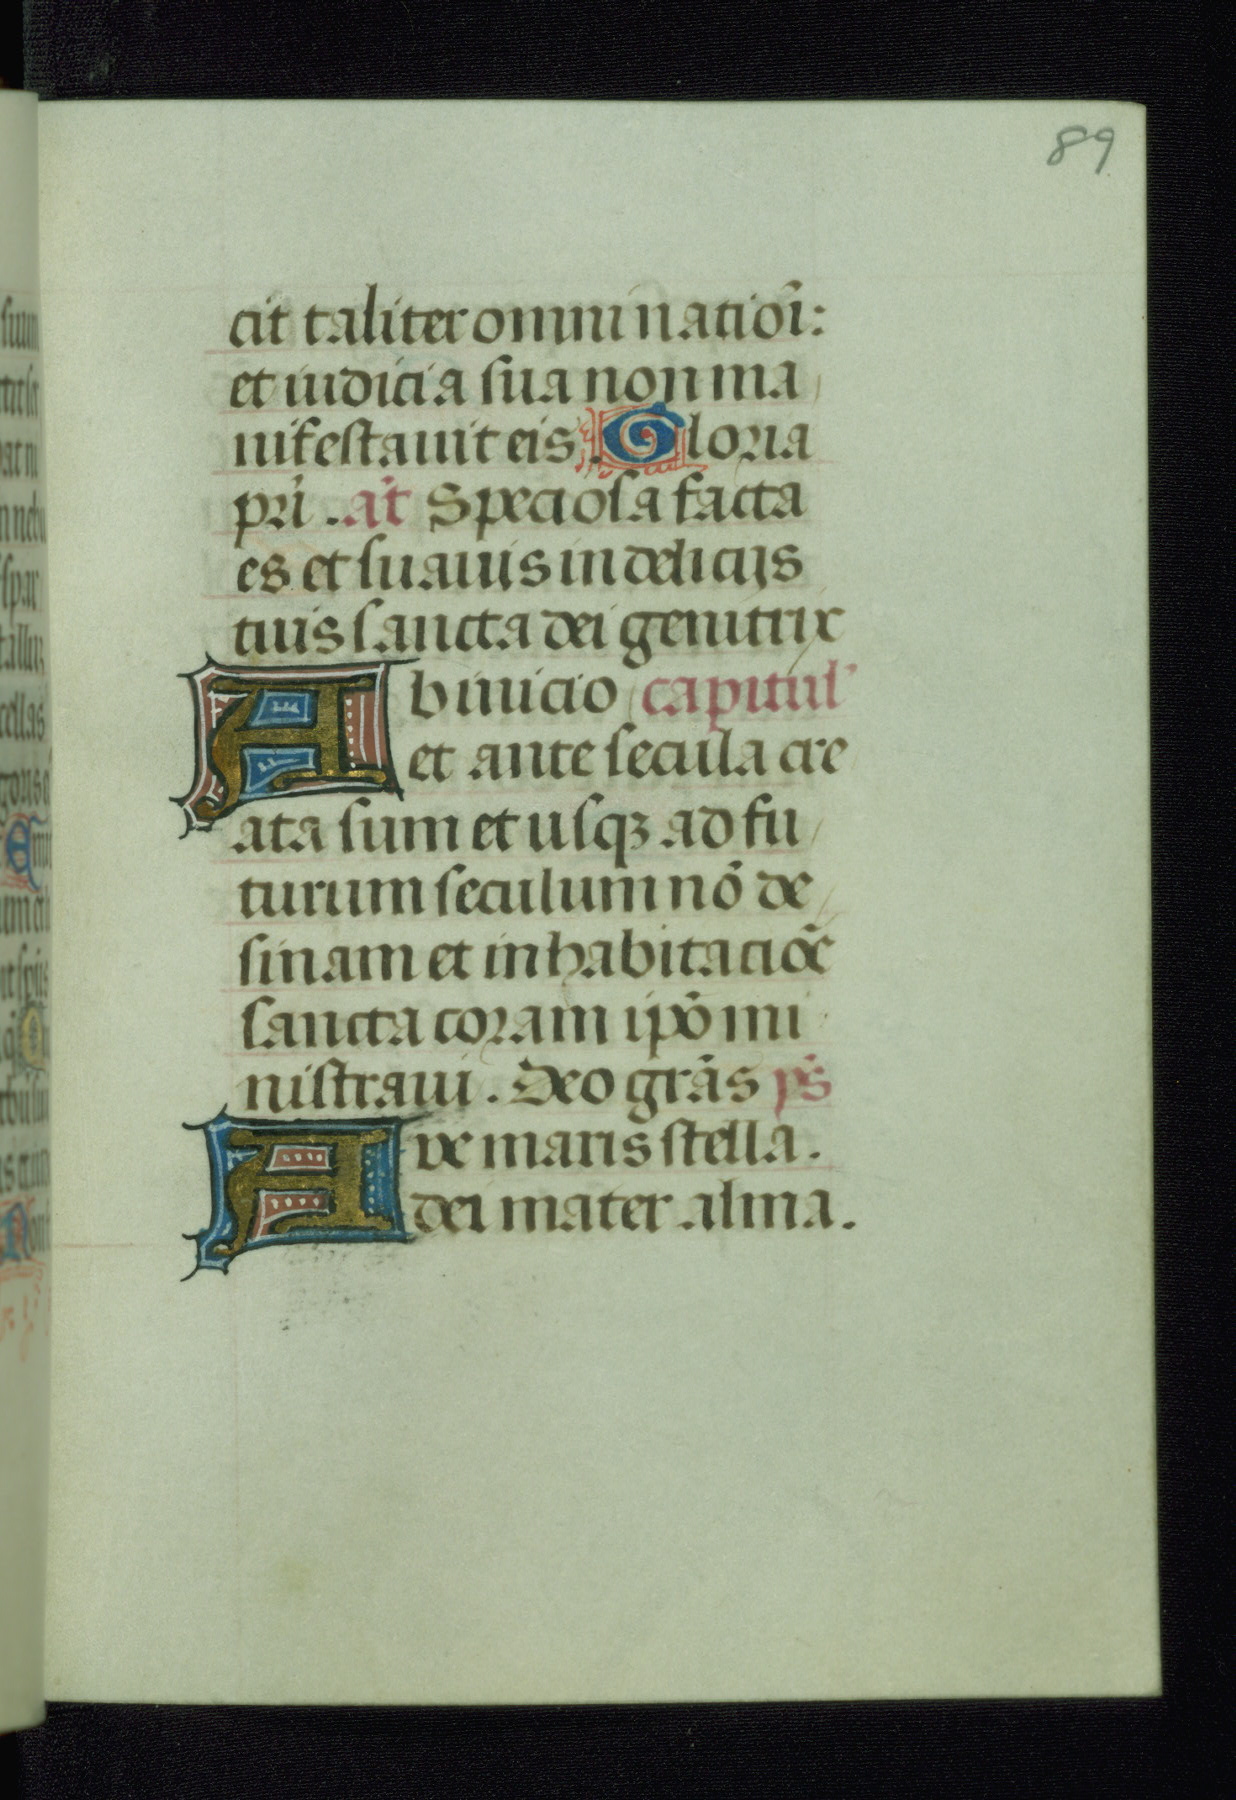 89
cit taliter omni natioı̄:
et iudicia sua non ma
nifestauit eis. Gloria
pr̄i . an̄t Speciosa facta
es et suauis in delicijs
tuis sancta dei genitrix
Ab inicio capitul'
et ante secula cre
ata sum et usqꝫ ad fu
turum seculum nō de
sinam et in habitaciōe
sancta coram ip̄o mi
nistraui . Deo gr̄as ẏs
Aue maris stella .
dei mater alma .